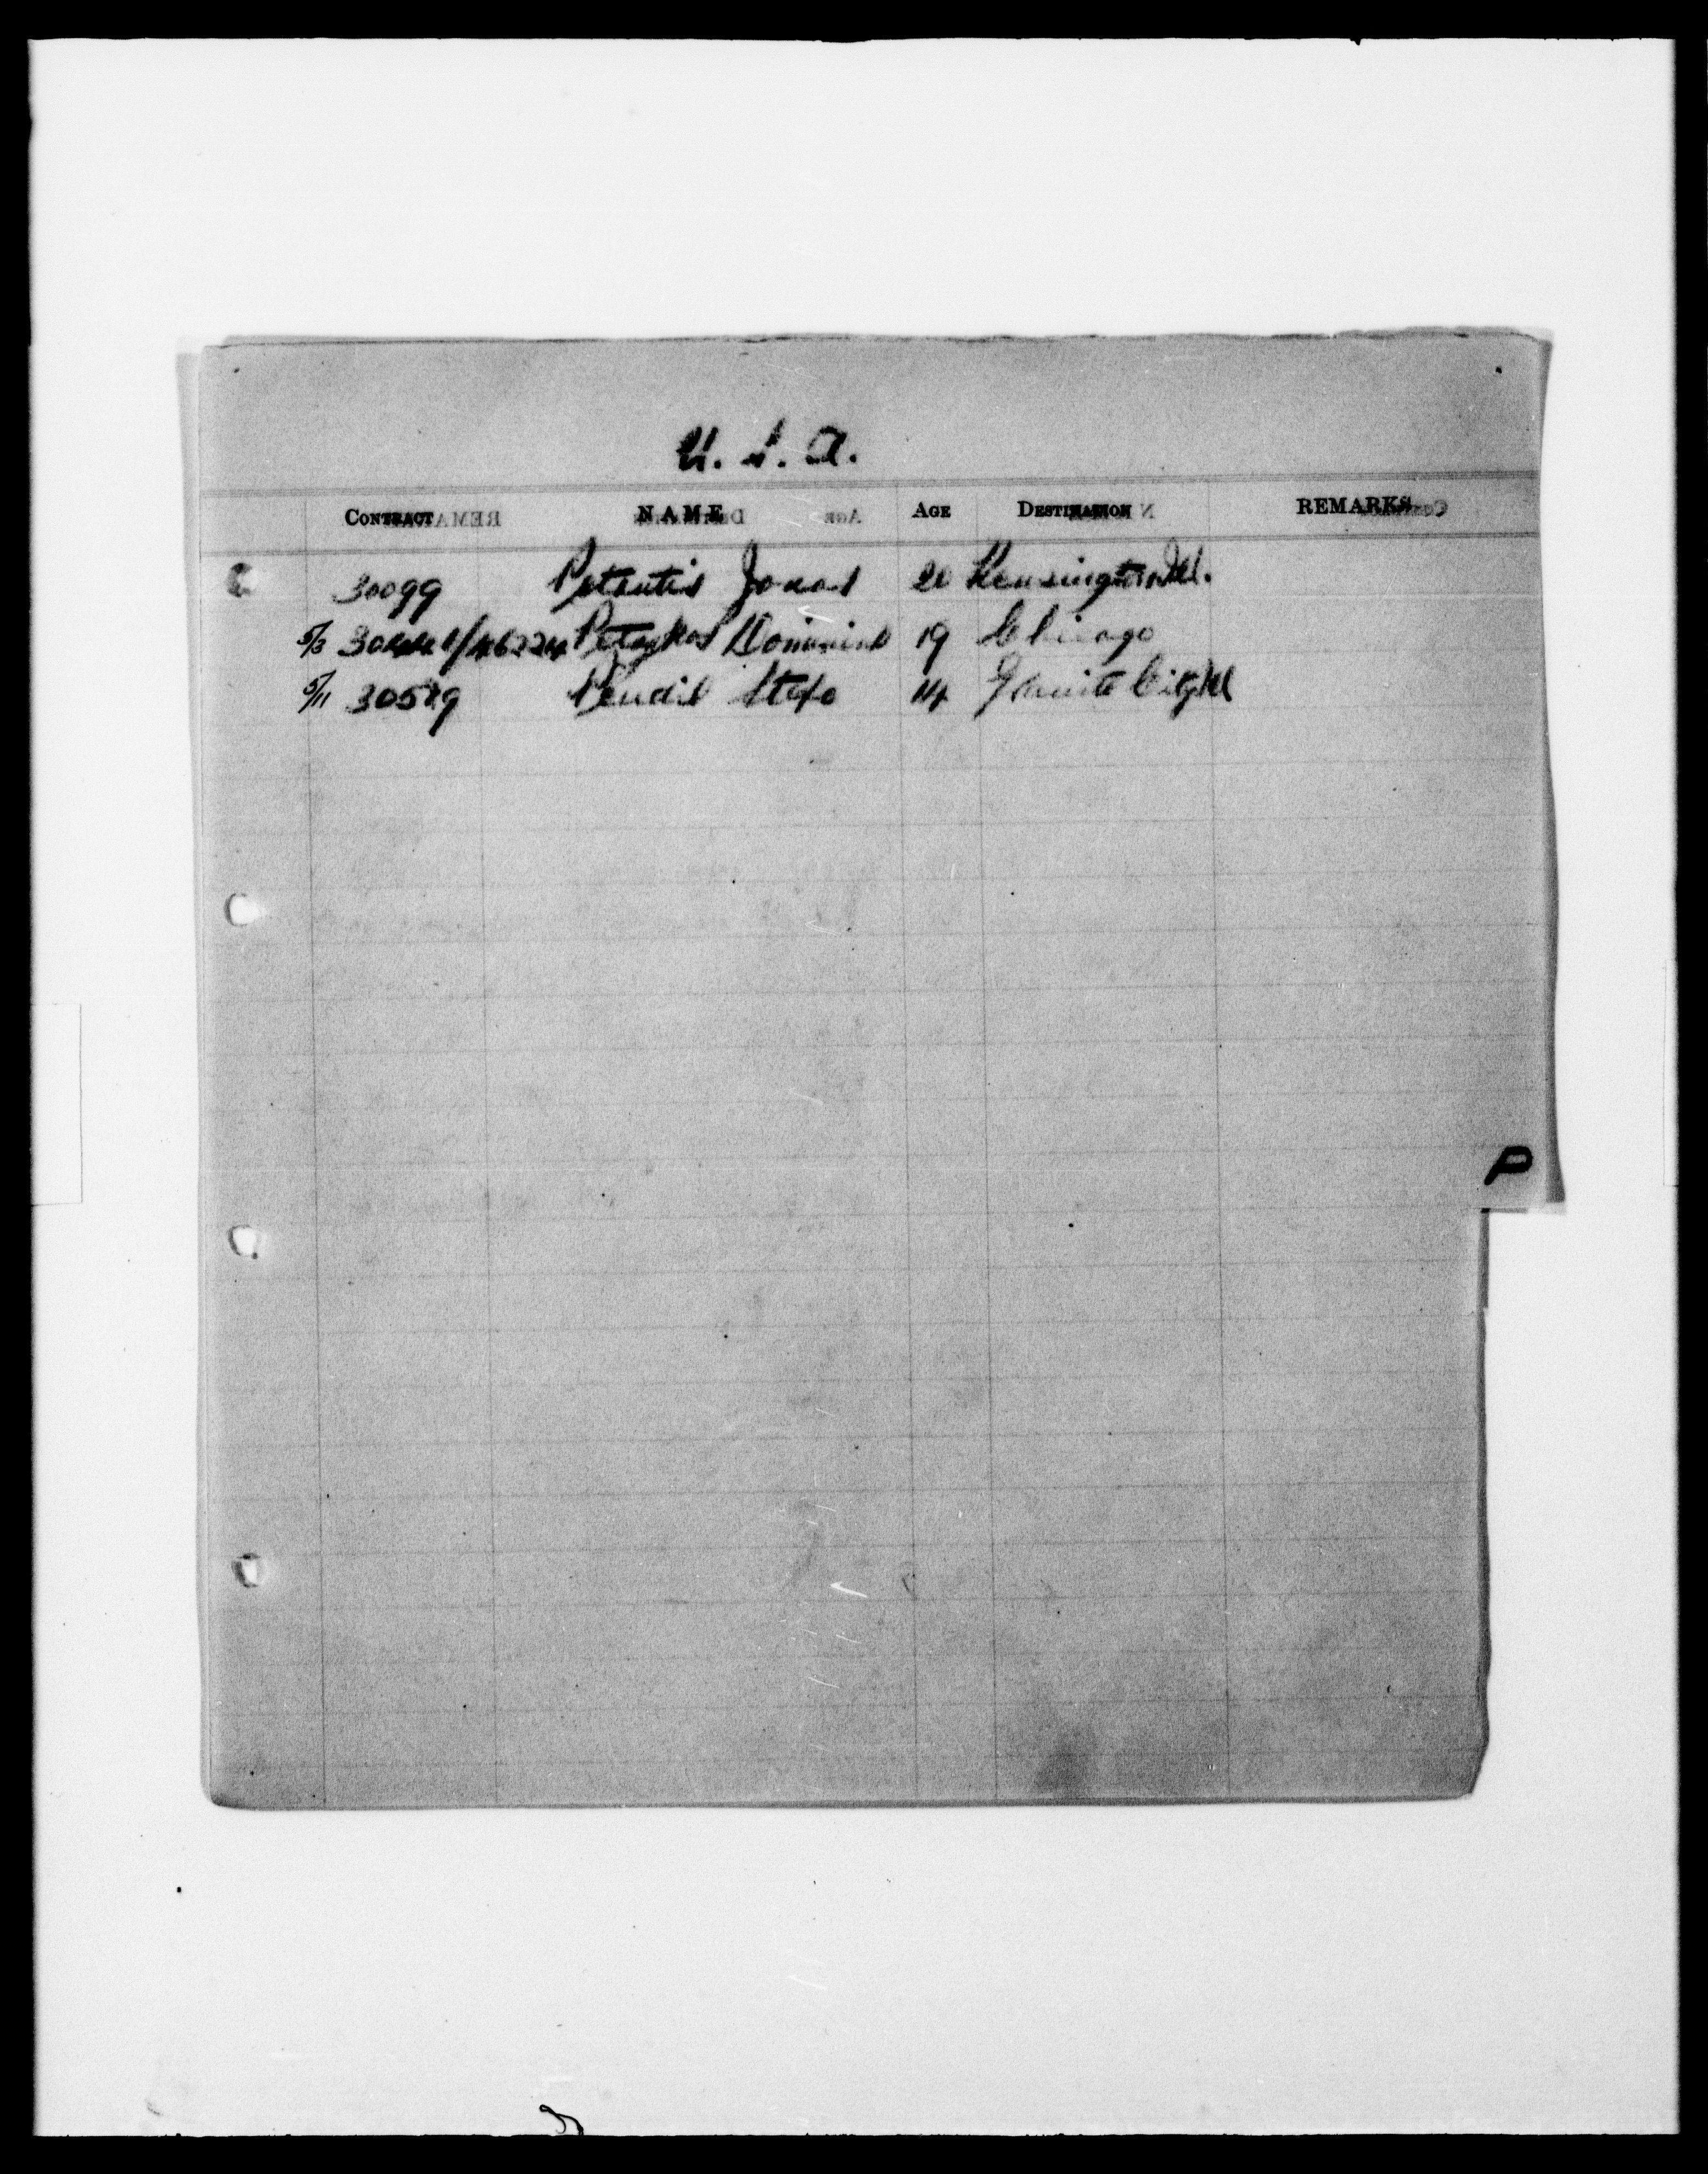 U. S. A.
CONTRACT NAME AGE DESTINATION REMARKS
30099 Petantis Jonas 20 Kensington Ill.
5/3 Dominick 19 Chicago
5/11 30529 Stefo 14 Granite City Ill
P